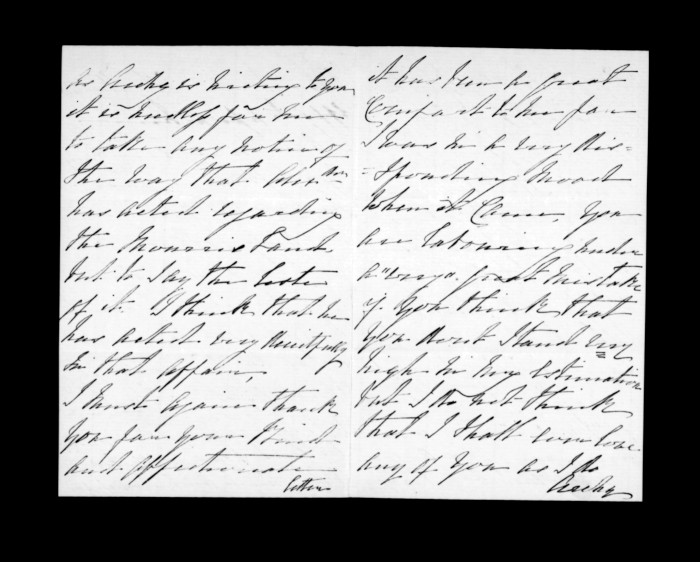 As Archy is writing to you
it is needless for me
to take any notice of
the way that Alexdr
has acted regarding
the Land
but to say the least
of it. I think that he
has acted very deceitfully
in that affair,
I must again thank
you for your kind
and affectionate
letter
it has been a great
Comfort to me for
I was in a very dis=
=sponding mood
when it Came, you
are labouring under
a very great mistake
if you think that
you dont stand very
high in my estimation
but I do not think
that I shall ever love
any of you as I do
Archy